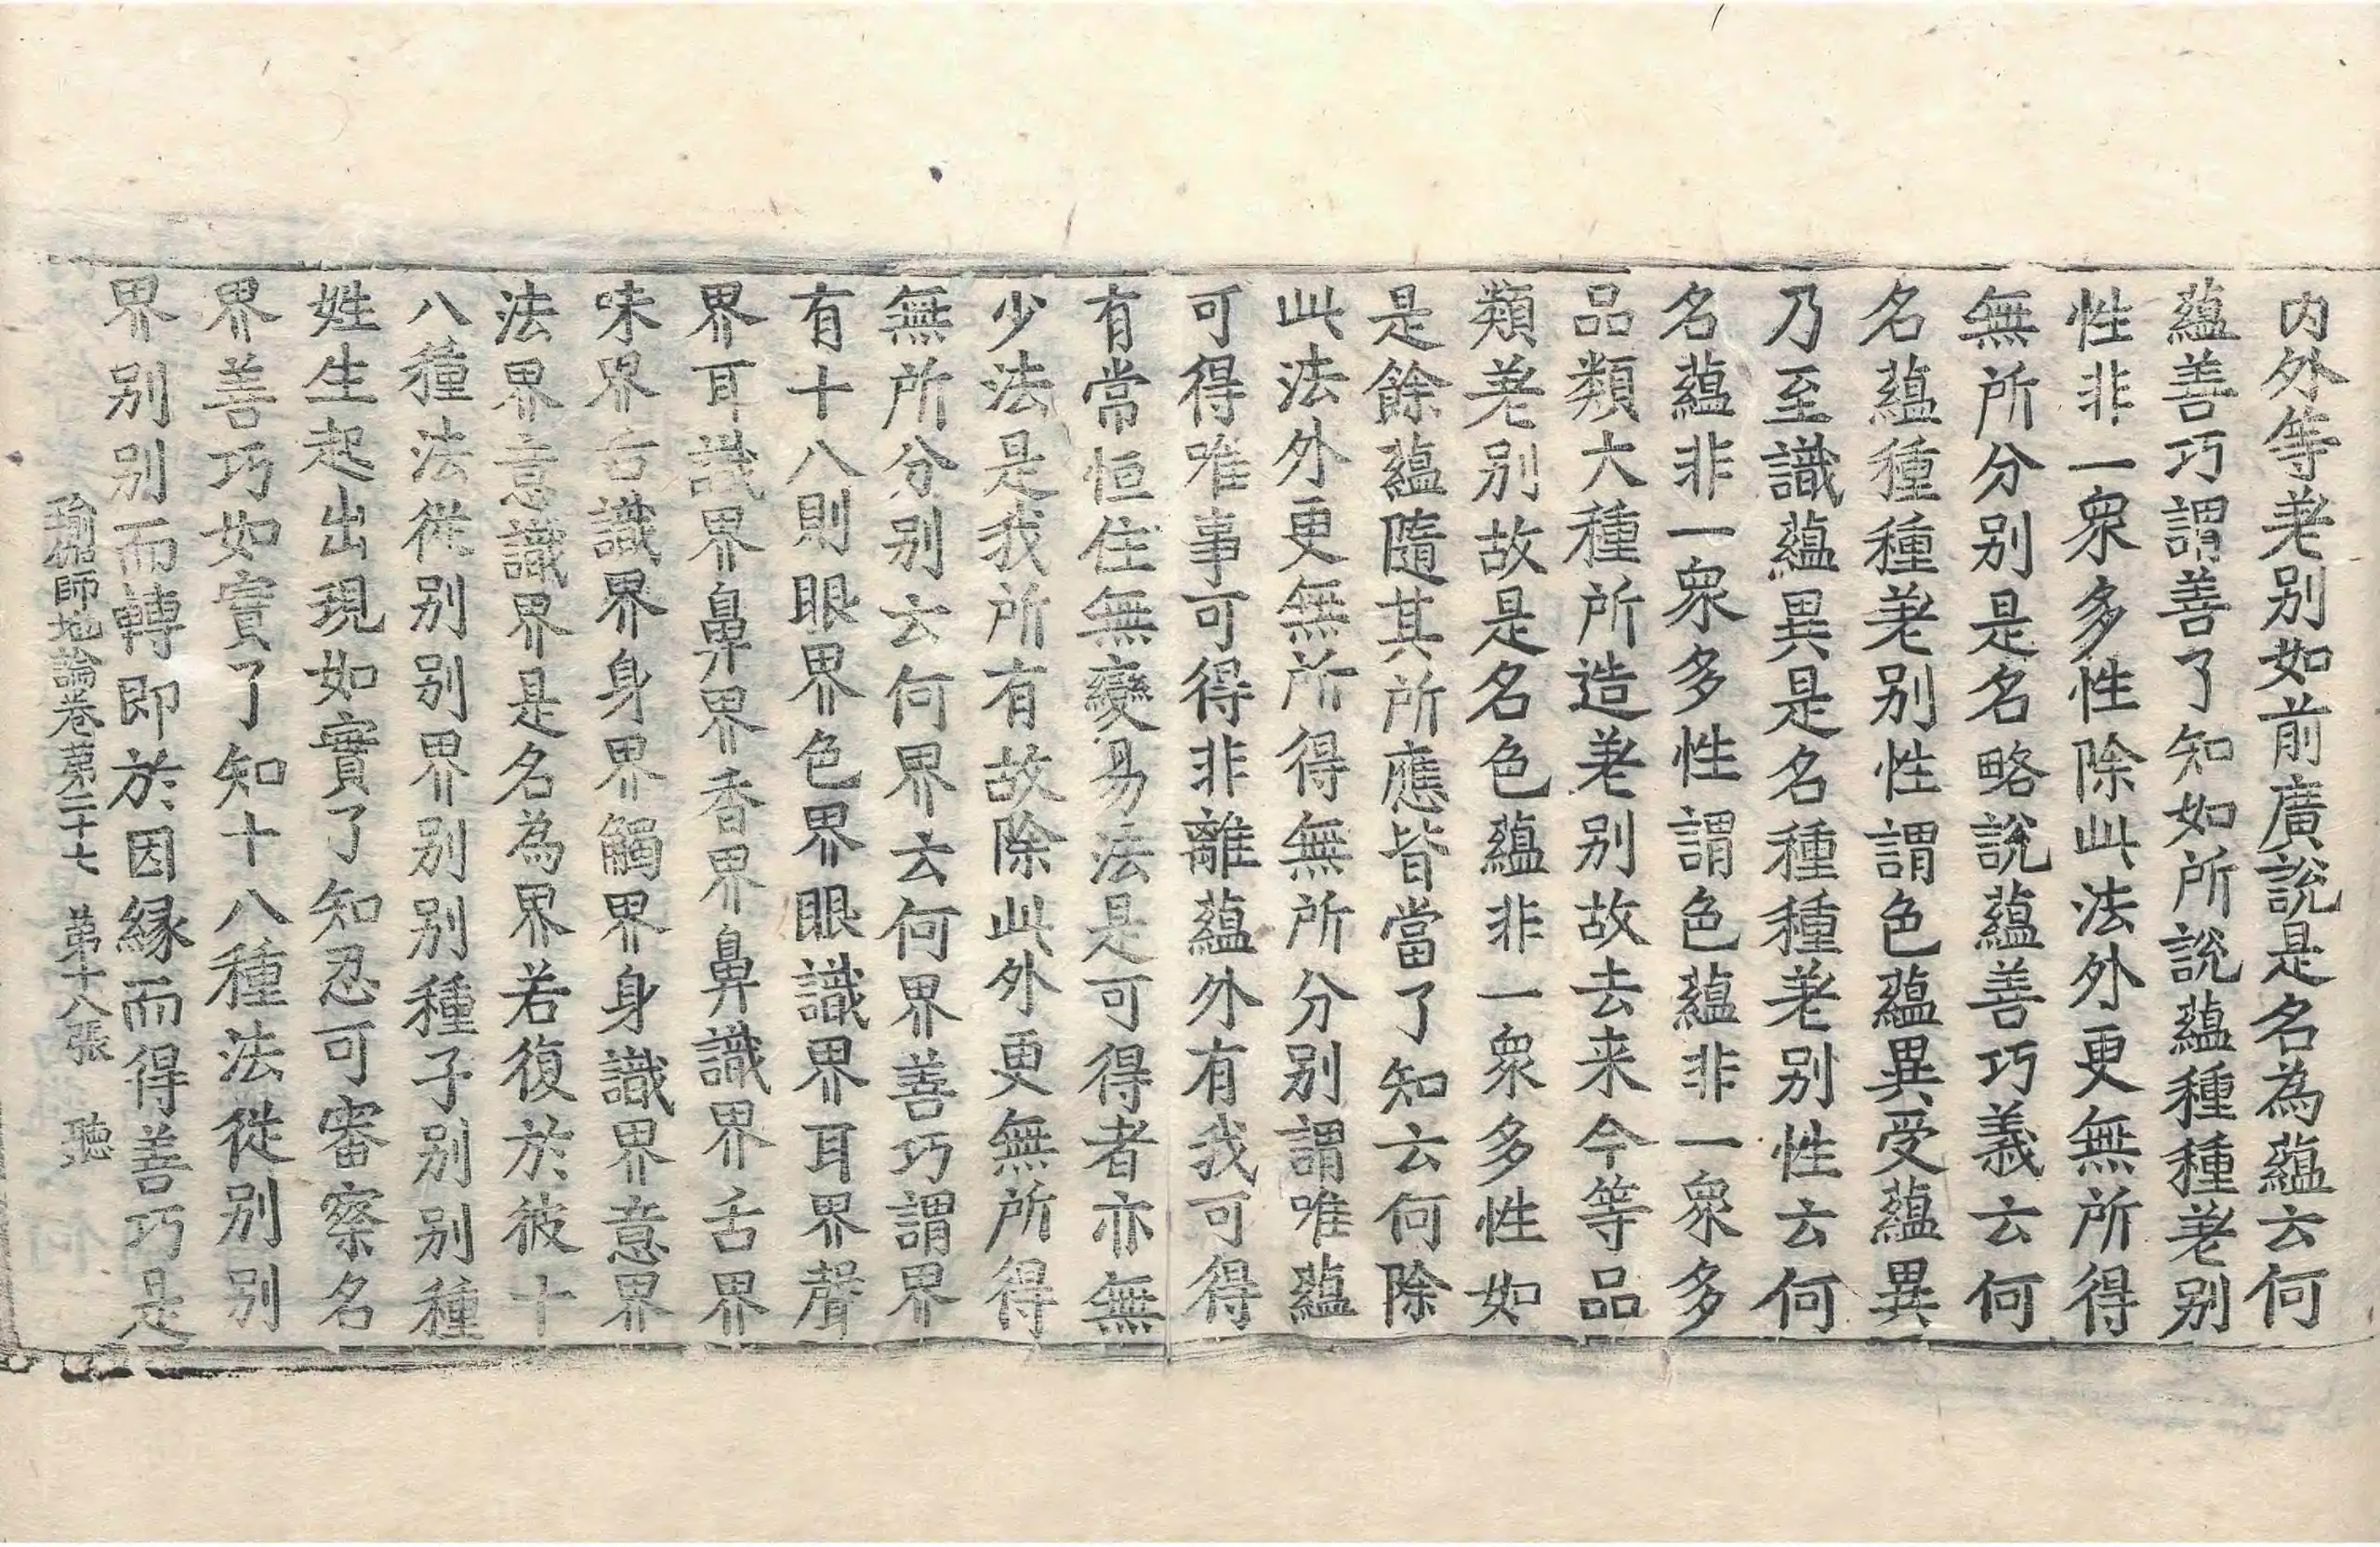 内外等差别如前廣說是名為蘊云何
蘊善巧謂善了知如所說蘊種種差别
性非一衆多性除此法外更無所得
無所分别是名略說蘊善巧義云何
名蘊種種差别性謂色蘊異受蘊異
乃至識蘊異是名種種差别性云何
名蘊非一衆多性謂色蘊非一衆多
品類大種所造差别故去来今等品
類差别故是名色蘊非一衆多性如
是餘蘊隨其所應皆當了知云何除
此法外更無所得無所分别謂唯蘊
可得唯事可得非離蘊外有我可得
有常恒住無變易法是可得者亦無
少法是我所有故除此外更無所得
無所分别云何界云何界善巧謂界
有十八則眼界色界眼識界耳界聲
界耳識界鼻界香界鼻識界舌界
味界舌識界身界觸界身識界意界
法界意識界是名為界若復於彼十
八種法從别别界别别種子别别種
姓生起出現如實了知忍可審察名
界善巧如實了知十八種法從别别
界别别而轉即於因縁而得善巧是
瑜伽師地論卷第二十七 第十八張 聽